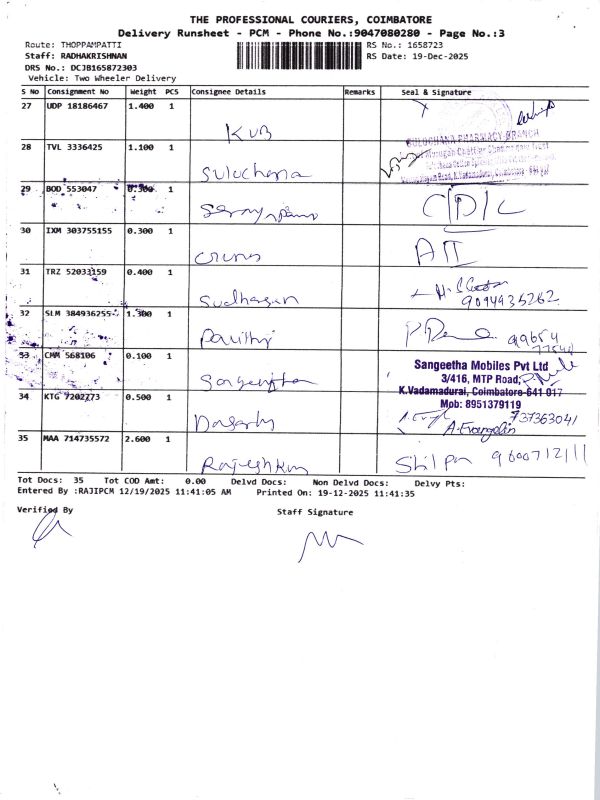 THE PROFESSIONAL COURIERS, COIMBATORE
Delivery Runsheet - PCM - Phone No.:9047080280 - Page No.:3
Route: THOPPAMPATTI RS No.: 1658723
Staff: RADHAKRISHNAN RS Date: 19-Dec-2025
DRS No.: DCJB165872303
Vehicle: Two Wheeler Delivery
S No Consignment No Weight PCS Consignee Details Remarks Seal & Signature
27 UDP 18186467 1.400 1 KUB
SULOCHANA PHARMACY BRANCH
28 TVL 3336425 1.100 1 Sulochana
29 BOD 553047 0.300 1
30 IXM 303755155 0.300 1
31 TRZ 52033159 0.400 1 Sudharsan
9094935262
32 SLM 384936255 1.300 1 Pavithy
33 CMM 568106 0.100 1 Sangeetha
Sangeetha Mobiles Pvt Ltd
3/416, MTP Road,
K.Vadamadurai, Coimbatore-641 017
Mob: 8951379119
34 KTG 7202773 0.500 1
737363041
A.Evangelin
35 MAA 714735572 2.600 1 Rajeshkun Shilpa 9600712111
Tot Docs: 35 Tot COD Amt: 0.00 Delvd Docs: Non Delvd Docs: Delvy Pts:
Entered By :RAJIPCM 12/19/2025 11:41:05 AM Printed On: 19-12-2025 11:41:35
Verified By Staff Signature